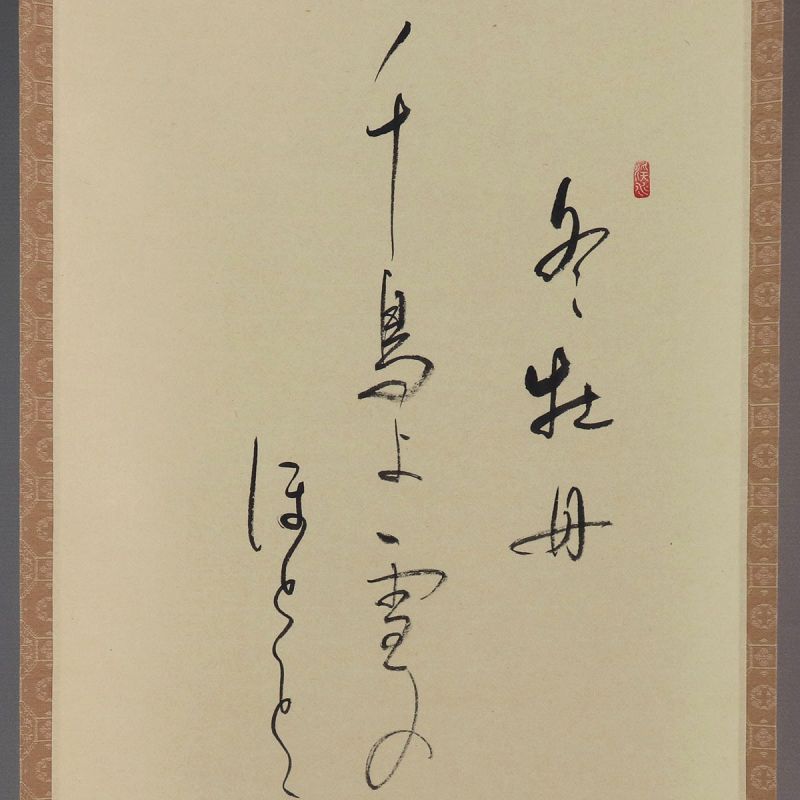 冬牡丹
千鳥よ雪の
ほとと